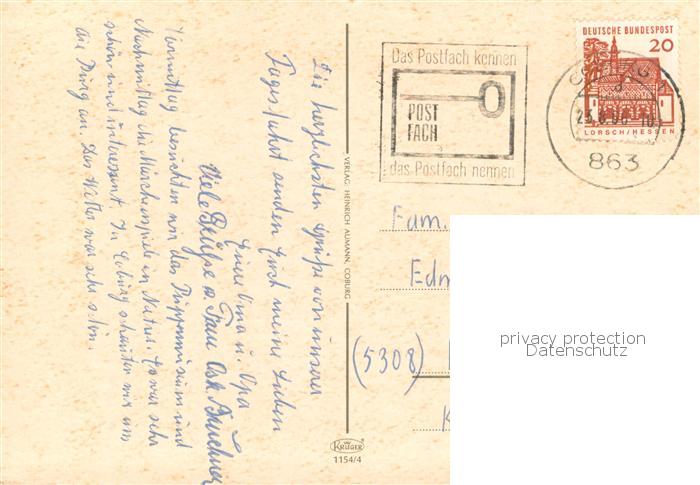 Die herzlichsten Grüße von unserer
Tagesfahrt senden Euch meine Lieben
Eure Oma u. Opa
Viele Grüße v. Tante
Vormittag besichten wir das Puppenmuseum und
Nachmittag die Märchenspiele in Es war sehr
schön und interessant. In Coburg schauten wir uns
die Burg an. Das Wetter war sehr schön.
VERLAG HEINRICH AUMANN, COBURG
KRÜGER
1154/4
Das Postfach kennen
POST
FACH
das Postfach nennen
COBURG
863
DEUTSCHE BUNDESPOST
20
LORSCH/HESSEN
Fam.
Edm
(5308)
K
privacy protection
Datenschutz